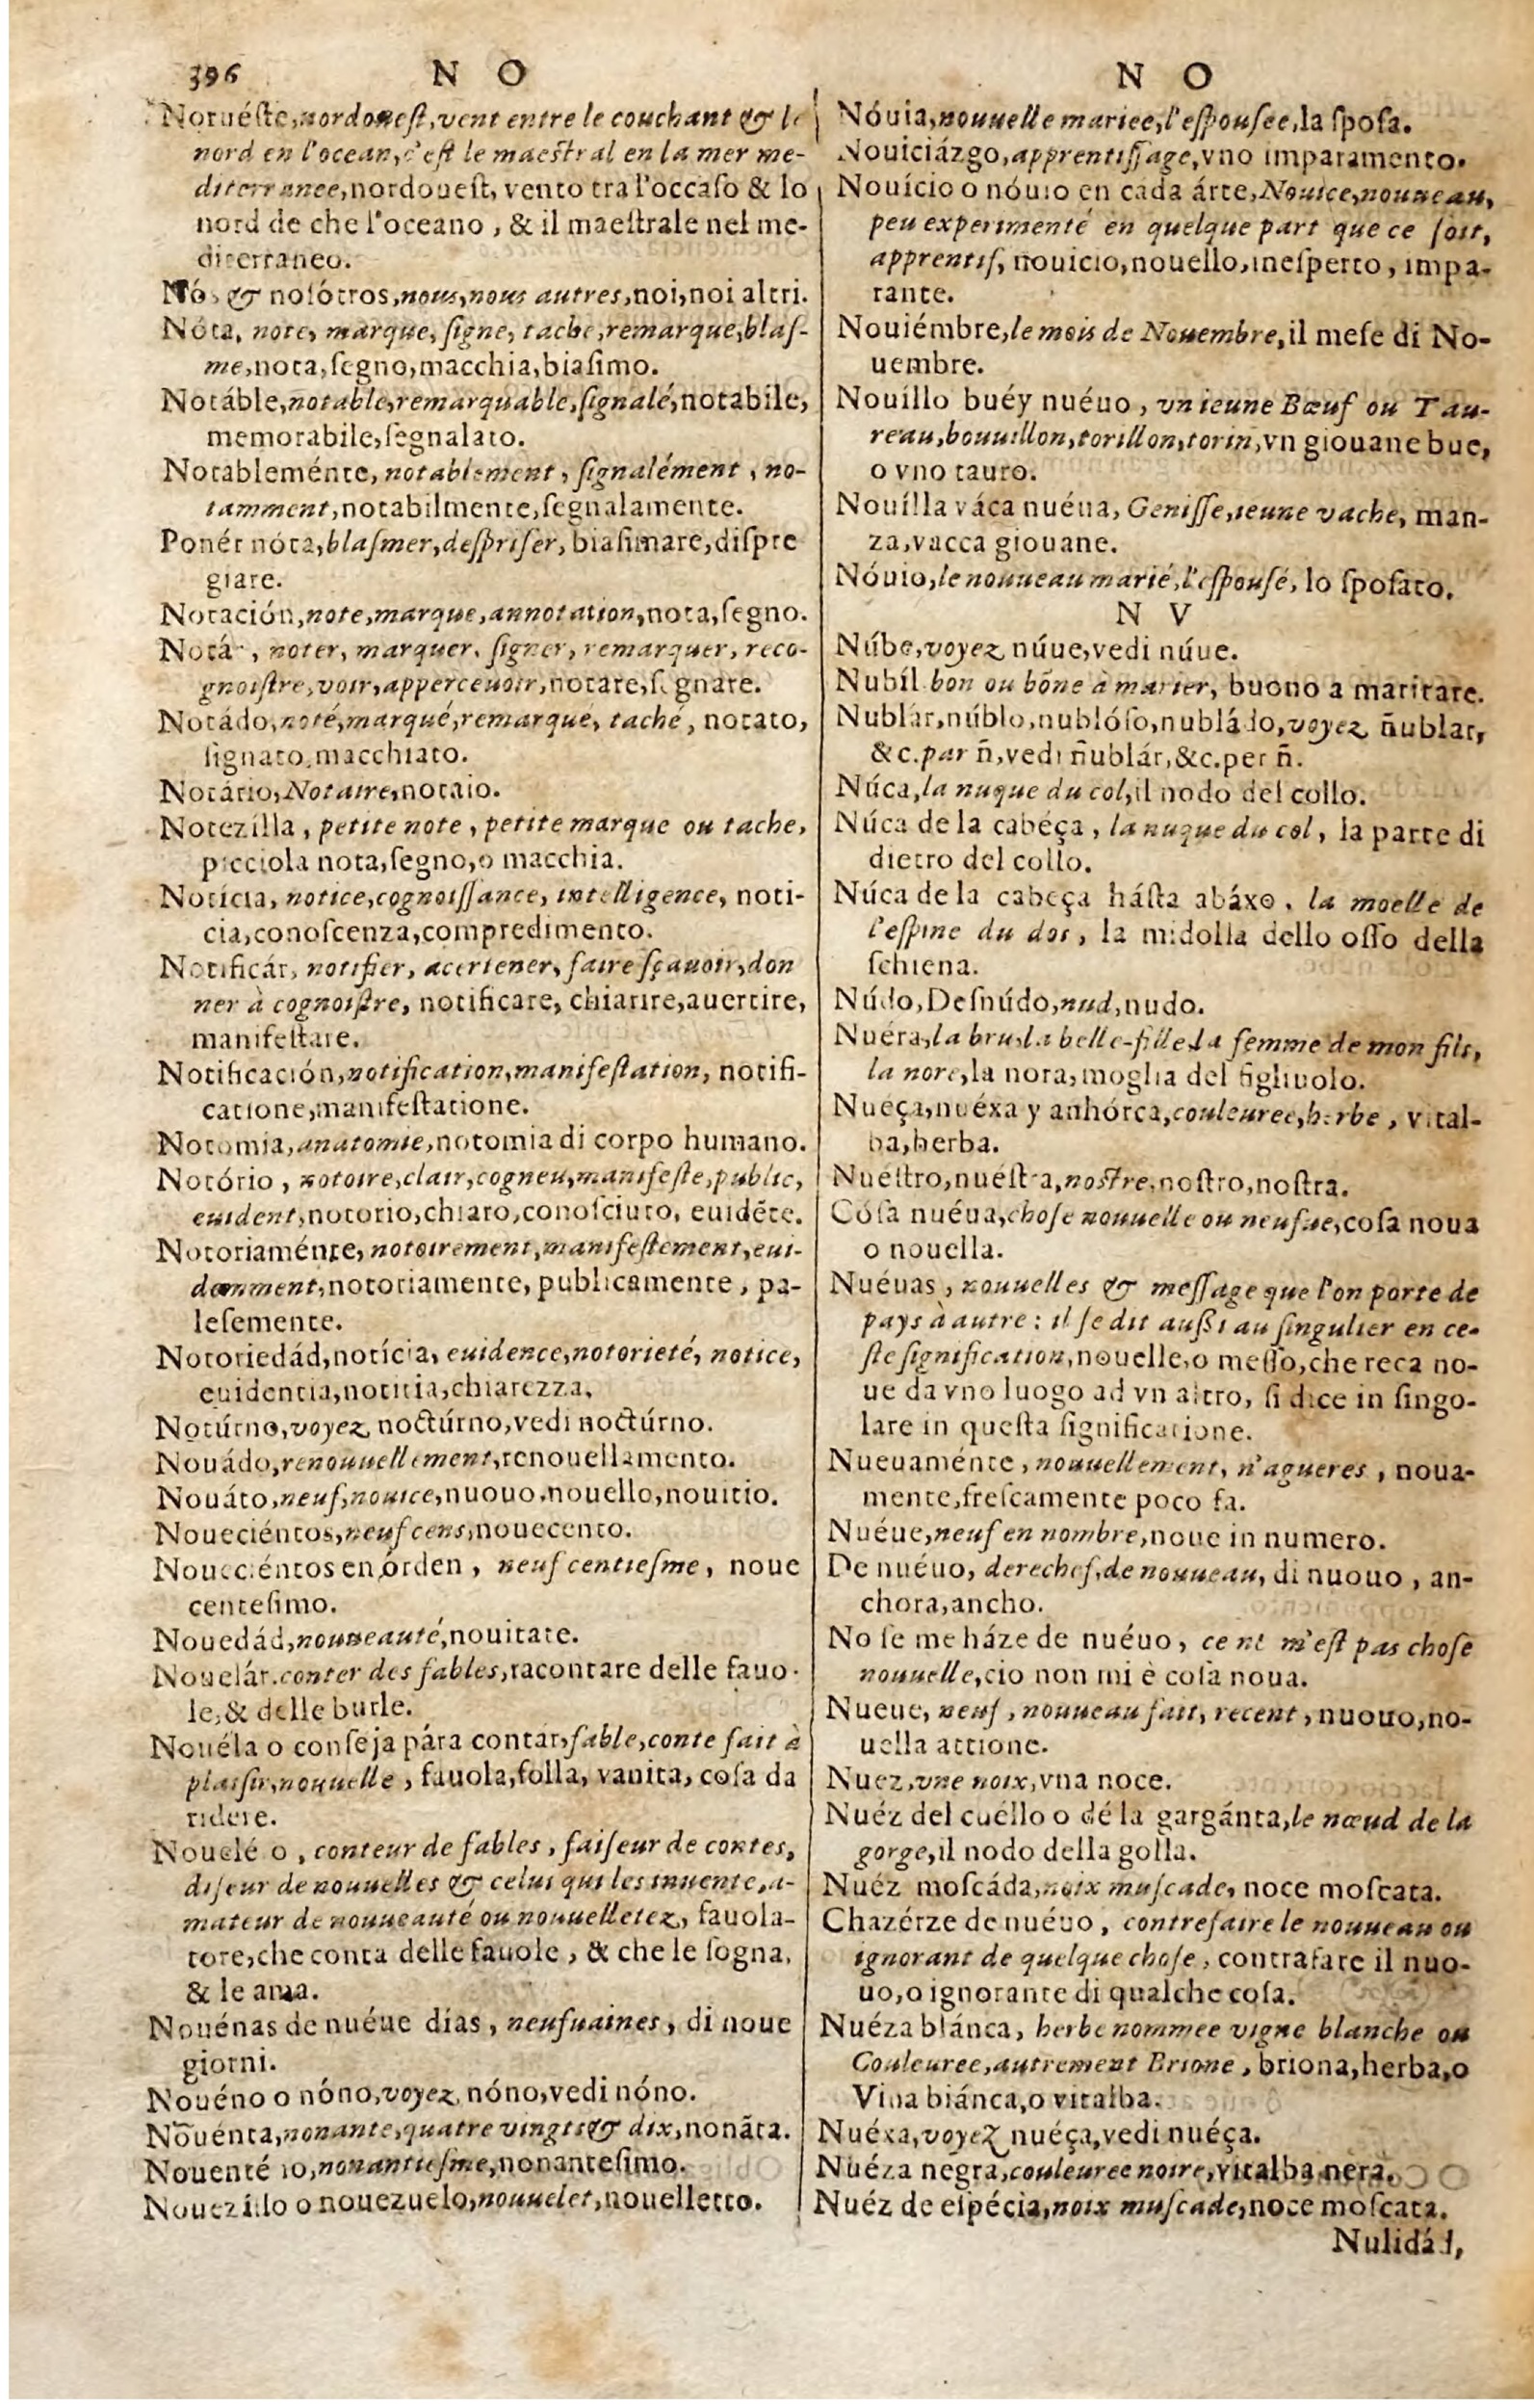 396 N O
Noruéſte, nordoueſt, vent entre le couchant & le
nord en l'ocean, c'eſt le maeſtral en la mer me-
diterranee, nordoueſt, vento tra l'occaſo & lo
nord de che l'oceano, & il maeſtrale nel me-
diterraneo.
Nós & noſótros, nous, nous autres, noi, noi altri.
Nóta, note, marque, ſigne, tache, remarque, blaſ-
me, nota, ſegno, macchia, biaſimo.
Notáble, notable, remarquable, ſignalé, notabile,
memorabile, ſegnalato.
Notableménte, notablement, ſignalément, no-
tamment, notabilmente, ſegnalamente.
Ponér nóta, blaſmer, deſpriſer, biaſimare, diſpre
giare.
Notación, note, marque, annotation, nota, ſegno.
Notár, noter, marquer, ſigner, remarquer, reco-
gnoiſtre, voir, apperceuoir, notare, ſegnare.
Notádo, noté, marqué, remarqué, taché, notato,
ſignato, macchiato.
Notário, Notaire, notaio.
Notezílla, petite note, petite marque ou tache,
picciola nota, ſegno, o macchia.
Notícia, notice, cognoiſſance, intelligence, noti-
cia, conoſcenza, compredimento.
Notificár, notifier, acertener, faire ſçauoir, don
ner à cognoiſtre, notificare, chiarire, auertire,
manifeſtare.
Notificación, notification, manifeſtation, notifi-
catione, manifeſtatione.
Notomia, anatomie, notomia di corpo humano.
Notório, notoire, clair, cogneu, manifeſte, public,
euident, notorio, chiaro, conoſciuto, euidẽte.
Notoriaménte, notoirement, manifeſtement, eui-
demment, notoriamente, publicamente, pa-
leſemente.
Notoriedád, notícia, euidence, notorieté, notice,
euidentia, notitia, chiarezza.
Notúrno, voyez noctúrno, vedi noctúrno.
Nouádo, renouuellement, renouellamento.
Nouáto, neuf, nouice, nuouo, nouello, nouitio.
Noueciéntos, neuf cens, nouecento.
Noueciéntos en órden, neuf centieſme, noue
centeſimo.
Nouedád, nouueauté, nouitate.
Nouelár, conter des fables, racontare delle fauo-
le, & delle burle.
Nouéla o conſeja pára contar, fable, conte fait à
plaiſir, nouuelle, fauola, folla, vanita, coſa da
ridere.
Nouelé o, conteur de fables, faiſeur de contes,
diſeur de nouuelles & celui qui les inuente, a-
mateur de nouueauté ou nouuelletez, fauola-
tore, che conta delle fauole, & che le ſogna,
& le ama.
Nouénas de nuéue días, neufuaines, di noue
giorni.
Nouéno o nóno, voyez nóno, vedi nóno.
Nouénta, nonante, quatre vingts & dix, nonãta.
Nouenté 10, nonantieſme, nonanteſimo.
Nouezillo o nouezuelo, nouuelet, nouelletto.
N O
Nóuia, nouuelle mariee, l'eſpouſee, la ſpoſa.
Nouiciázgo, apprentiſſage, vno imparamento.
Nouício o nóuio en cáda árte, Nouice, nouueau,
peu experimenté en quelque part que ce ſoit,
apprentif, nouicio, nouello, ineſperto, impa-
rante.
Nouiémbre, le mois de Nouembre, il meſe di No-
uembre.
Nouíllo buéy nuéuo, vn ieune Bœuf ou Tau-
reau, bouuillon, torillon, torin, vn giouane bue,
o vno tauro.
Nouílla váca nuéua, Geniſſe, ieune vache, man-
za, vacca giouane.
Nóuio, le nouueau marié, l'eſpouſé, lo ſpoſato.
N V
Núbe, voyez núue, vedi núue.
Nubíl bon ou bõne à marier, buono a maritare.
Nublár, núblo, nublóſo, nubládo, voyez ñublar,
&c. par ñ, vedi ñublár, &c. per ñ.
Núca, la nuque du col, il nodo del collo.
Núca de la cabéça, la nuque du col, la parte di
dietro del collo.
Núca de la cabeça háſta abáxo, la moelle de
l'eſpine du dos, la midolla dello oſſo della
ſchiena.
Núdo, Deſnúdo, nud, nudo.
Nuéra, la bru, la belle-fille, la femme de mon fils,
la nore, la nora, moglia del figliuolo.
Nuéça, nuéxa y anhórca, couleuree, herbe, vital-
ba, herba.
Nuéſtro, nuéſtra, noſtre, noſtro, noſtra.
Cóſa nuéua, choſe nouuelle ou neufue, coſa noua
o nouella.
Nuéuas, nouuelles & meſſage que l'on porte de
pays à autre: il ſe dit auſſi au ſingulier en ce-
ſte ſignification, nouelle, o meſſo, che reca no-
ue da vno luogo ad vn altro, ſi dice in ſingo-
lare in queſta ſignificatione.
Nueuaménte, nouuellement, n'agueres, noua-
mente, freſcamente poco fa.
Nuéue, neuf en nombre, noue in numero.
De nuéuo, derechef, de nouueau, di nuouo, an-
chora, ancho.
No ſe me háze de nuéuo, ce ne m'eſt pas choſe
nouuelle, cio non mi è coſa noua.
Nueue, neuf, nouueau fait, recent, nuouo, no-
uella attione.
Nuez, vne noix, vna noce.
Nuéz del cuéllo o dé la gargánta, le nœud de la
gorge, il nodo della golla.
Nuéz moſcáda, noix muſcade, noce moſcata.
Chazérze de nuéuo, contrefaire le nouueau ou
ignorant de quelque choſe, contrafare il nuo-
uo, o ignorante di qualche coſa.
Nuéza blánca, herbe nommee vigne blanche ou
Couleuree, autrement Brione, briona, herba, o
Vina biánca, o vitalba.
Nuéxa, voyez nuéça, vedi nuéça.
Nuéza negra, couleuree noire, vitalba nera.
Nuéz de eſpécia, noix muſcade, noce moſcata.
Nulidád,